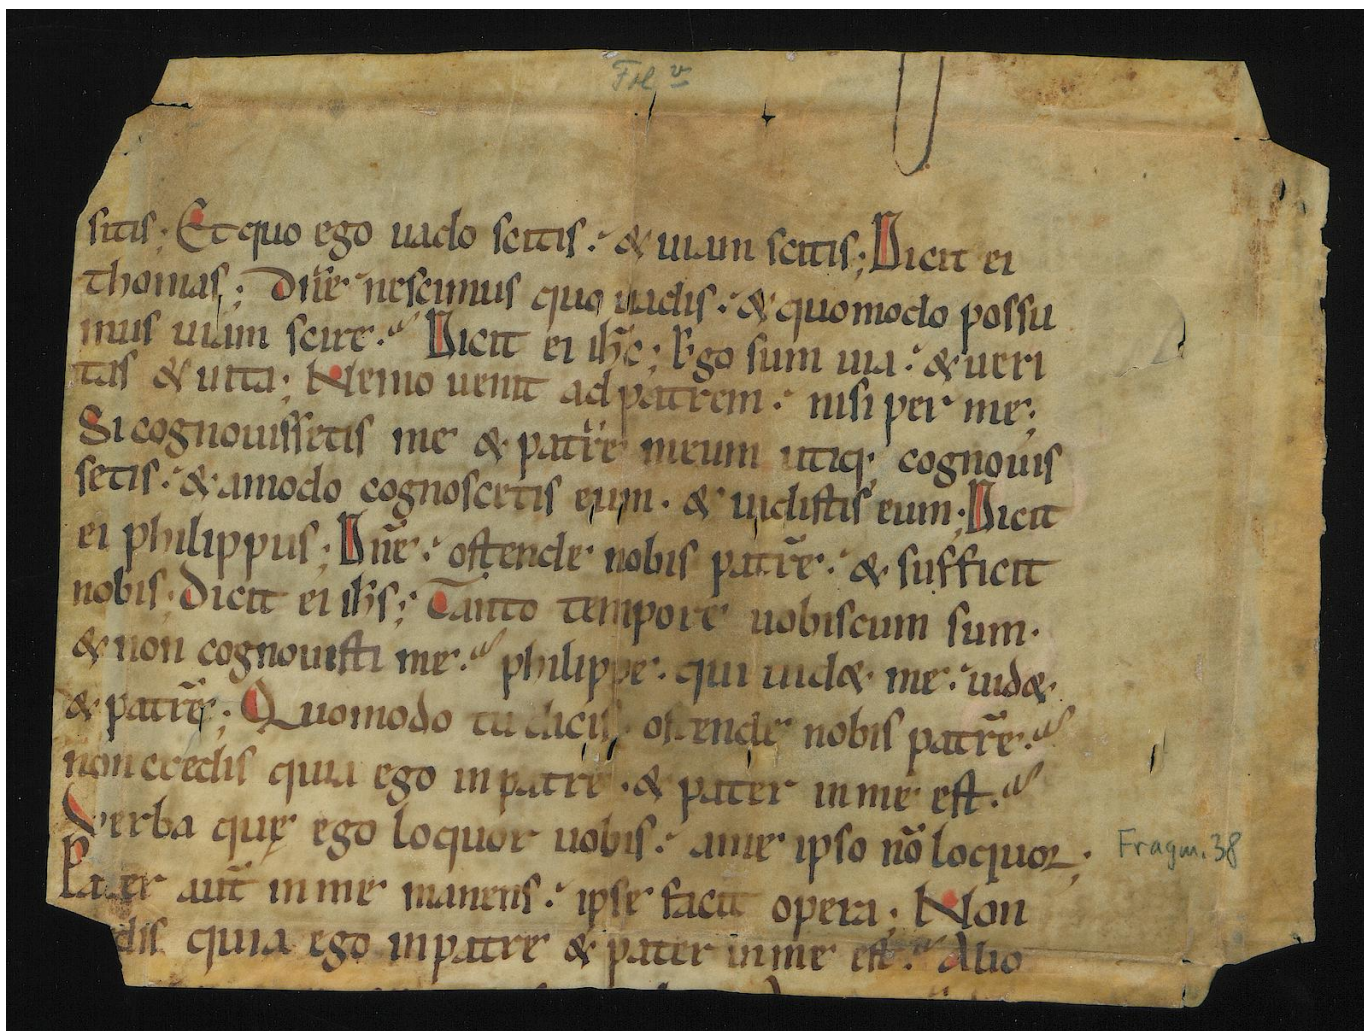 Fol v
sitis; Et quo ego uado scitis. & uiam scitis; Dicit ei
thomas; Dñe nescimus quo uadis. & quomodo possu
mus uiam scire. Dicit ei ihc; Ego sum uia. & ueri
tas & uita; Nemo uenit ad patrem. nisi per me;
Si cognouissetis me & patrē meum utiq; cognouis
setis. & amodo cognoscetis eum. & uidistis eum; Dicit
ei philippus; Dñe. ostende nobis patrē. & sufficit
nobis; Dicit ei ihs; Tanto tempore uobiscum sum.
& non cognouisti me. philippe. qui uid& me. uid&
& patrē; Quomodo tu dicis. ostende nobis patrē.
non credis quia ego in patre. & pater in me est.
Verba quę ego loquor uobis. a me ipso nō loquor;
Pater aut̄ in me manens. ipse facit opera; Non
dis quia ego in patre & pater in me est. Alio
Fragm. 38